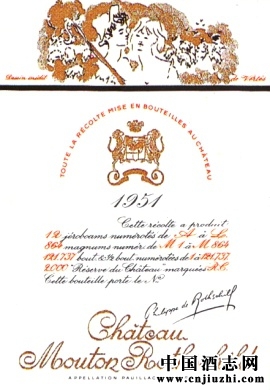 Dessin inédit de Vertès
TOUTE LA RÉCOLTE MISE EN BOUTEILLES AU CHÂTEAU
1951
Cette récolte a produit
12 jéroboams numérotés de A à L
864 magnums numér. de M 1 à M 864
121.737 bout. & ½ bout. numérotées de 1 à 121.737
2.000 "Réserve du Château" marquées R.C.
Cette bouteille porte le No
Philippe de Rothschild
Château
Mouton Rothschild
APPELLATION PAUILLAC
中国酒志网
www.cnjiuzhi.com